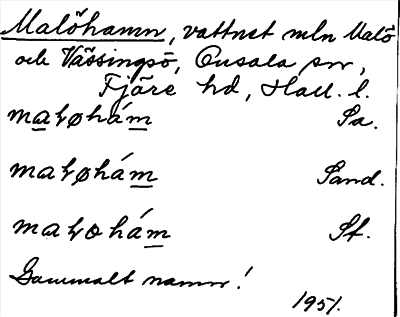 Malöhamn, vattnet mln Malö
och Vässingsö, Onsala sn,
Fjäre hd, Hall. l.
maⱡøhám Sa.
maⱡøhám Sand.
maⱡohám Sf.
Gammalt namn!
1951.